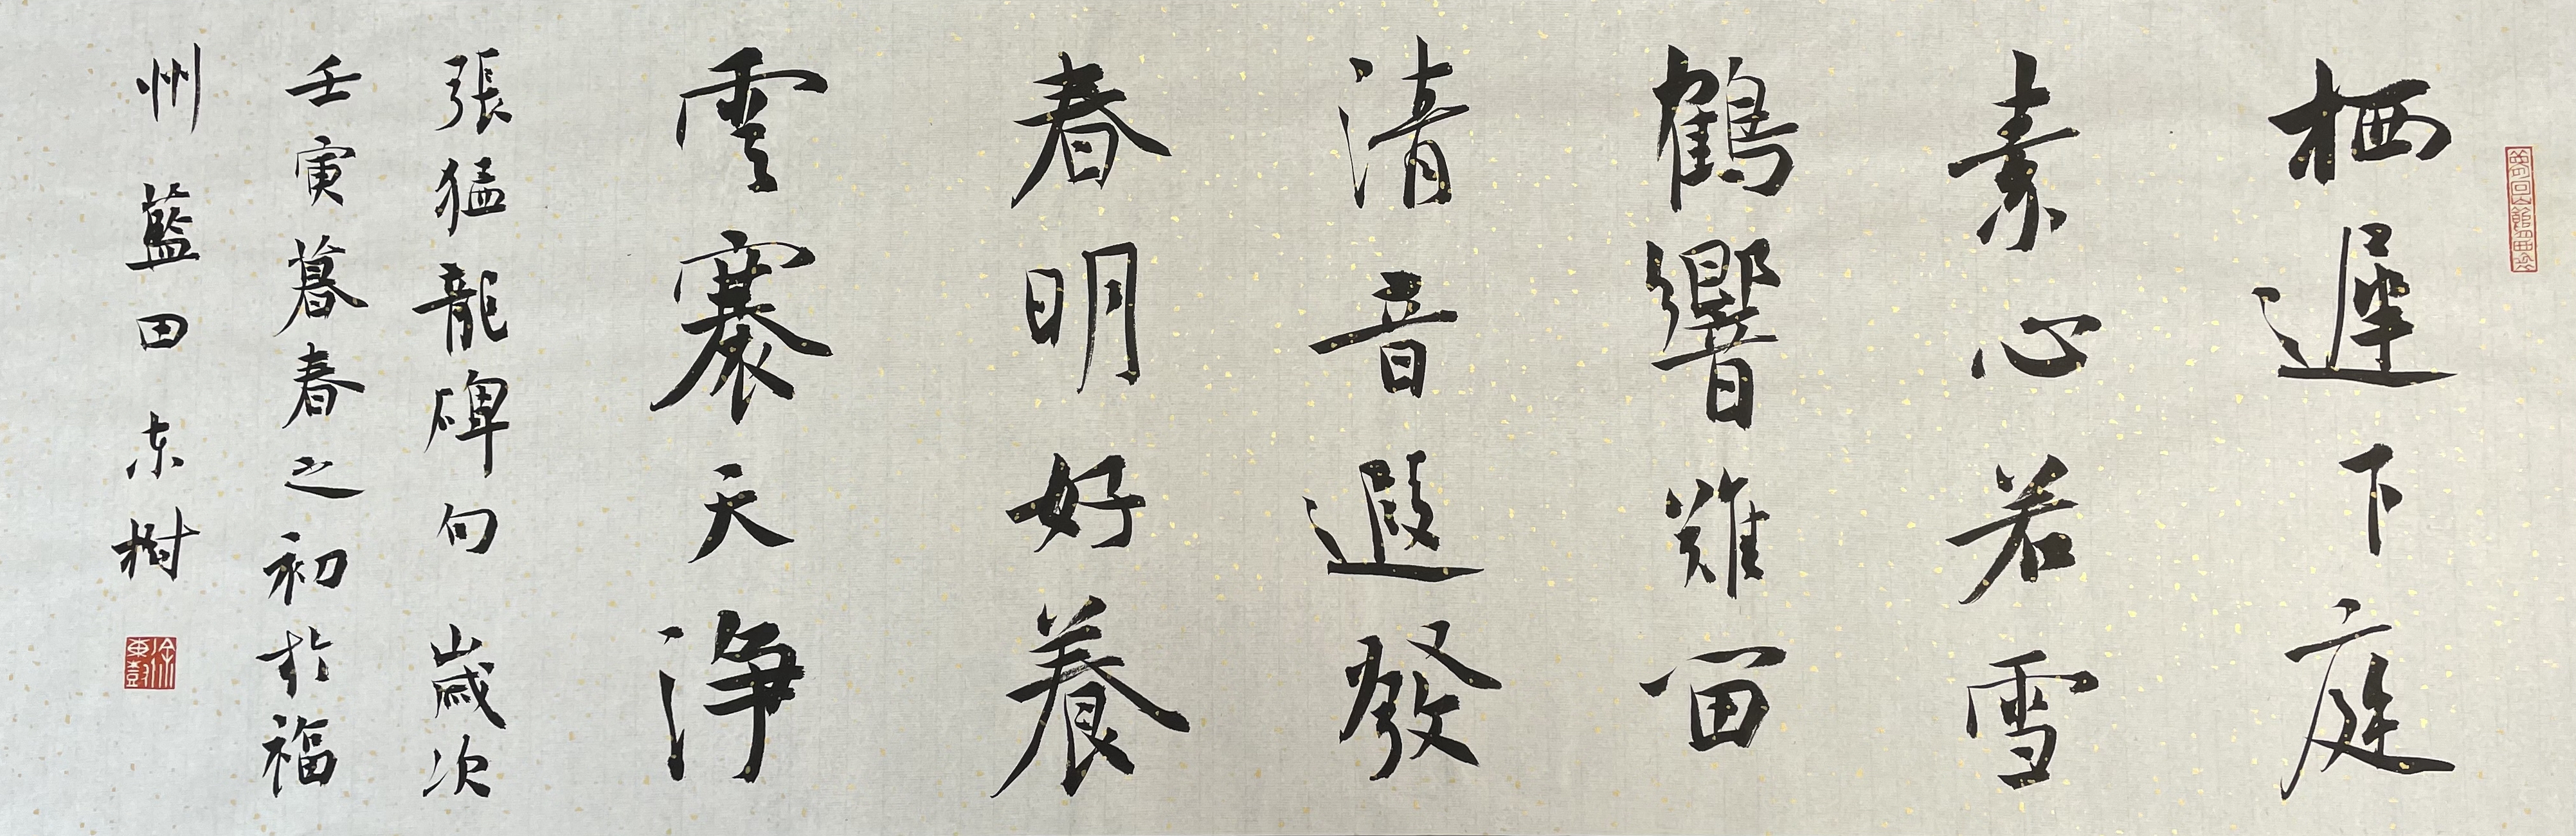 栖遲下庭
素心若雪
鶴響難留
清音遐發
春明好養
雲褰天净
張猛龍碑句 歲次
壬寅暮春之初於福
州藍田东樹
徐東彭